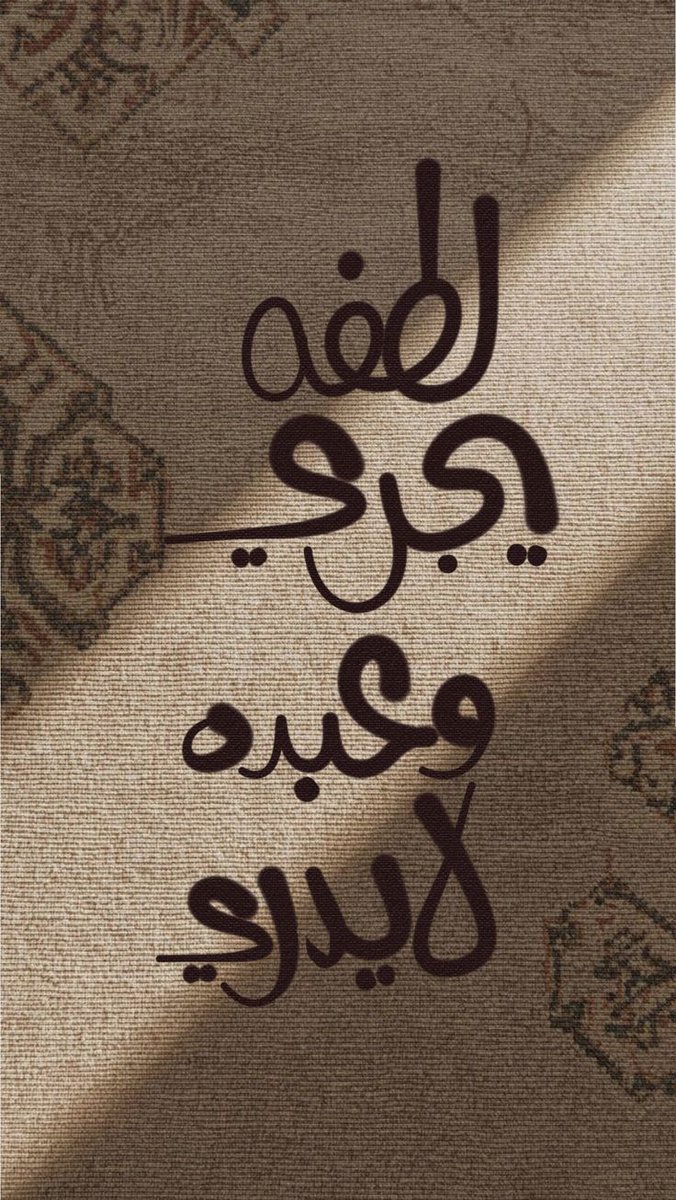 لطفه
يجري
وعبده
لا يدري